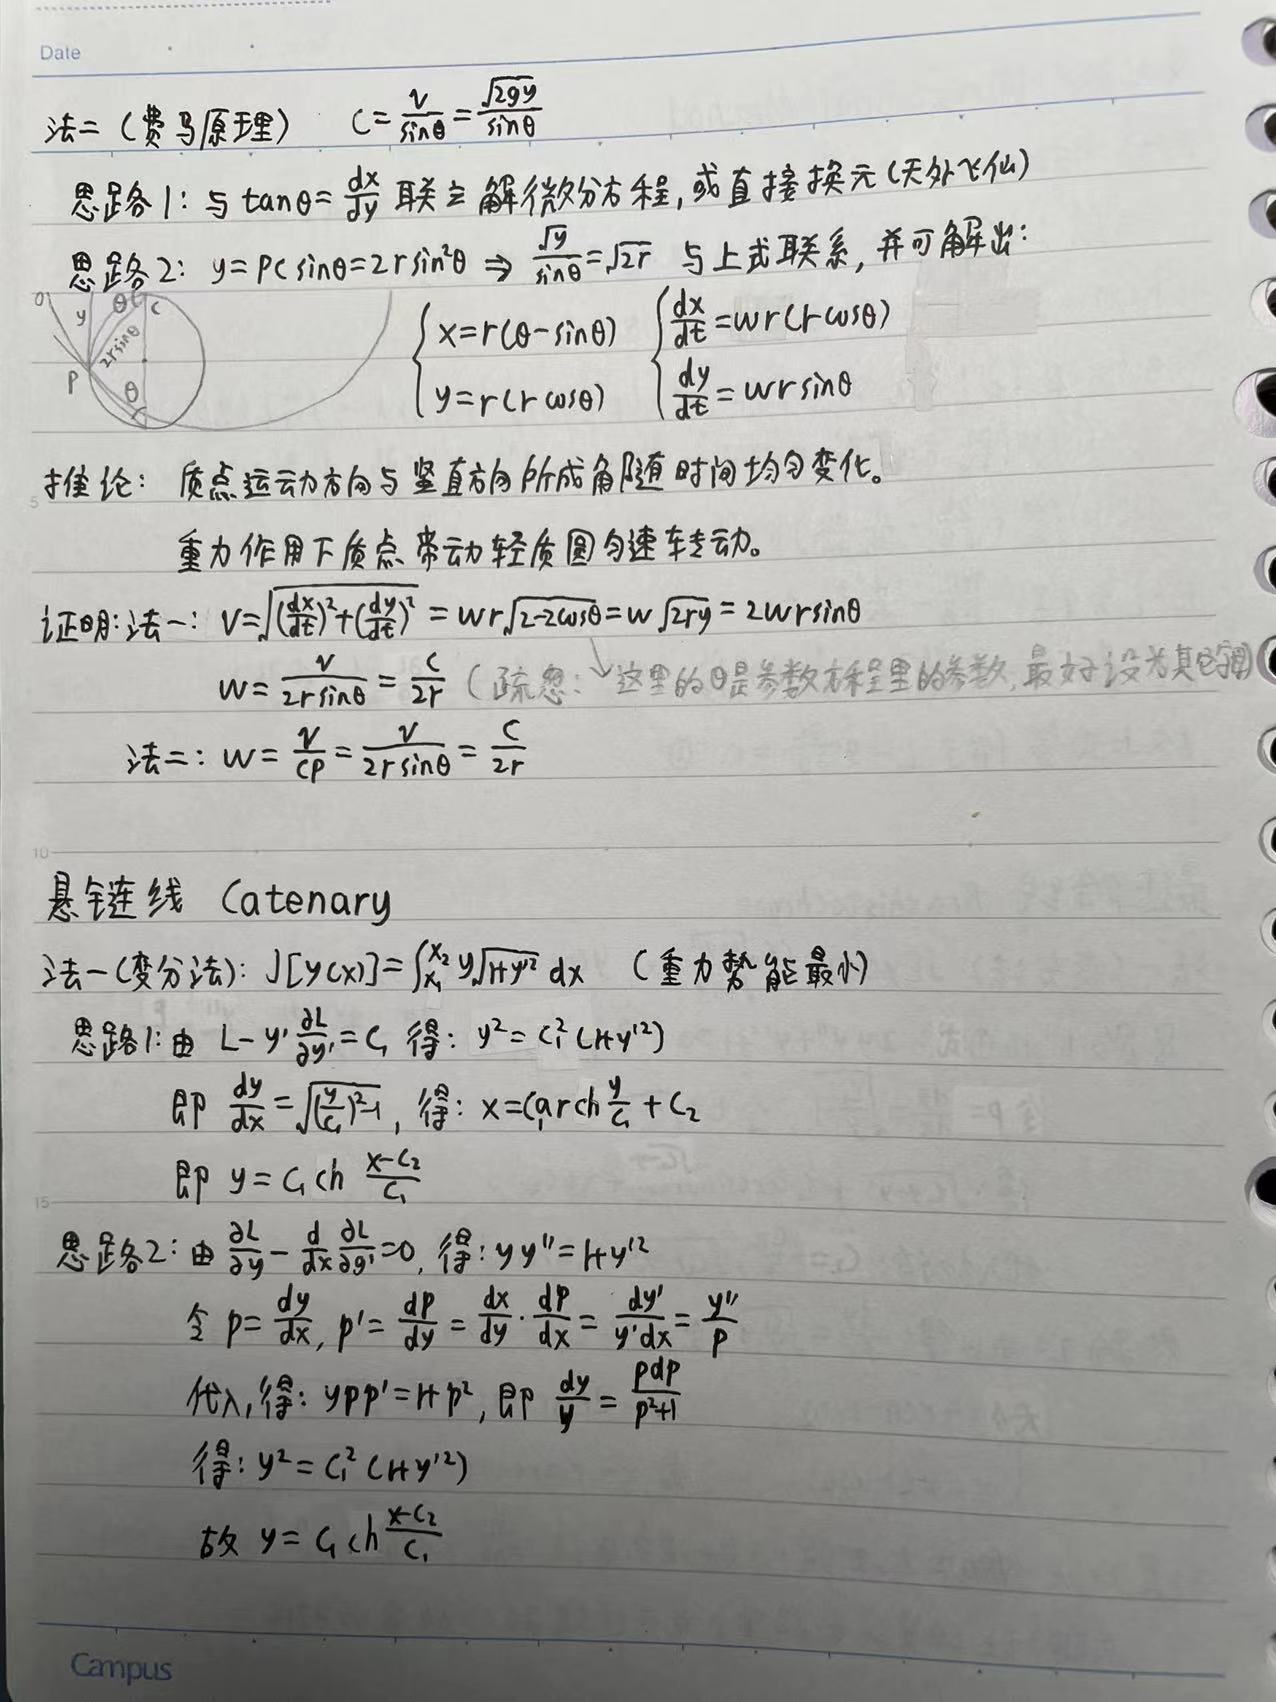 Date
法二(费马原理) C=v/sinθ=√2gy/sinθ
思路1: 与tanθ=dx/dy联立解微分方程,或直接换元(天外飞仙)
思路2: y=PCsinθ=2rsin²θ ⇒ √y/sinθ=√2r 与上式联系,并可解出:
O y θ C 2rsinθ P θ
{x=r(θ-sinθ) {dx/dt=wr(1-cosθ)
y=r(1-cosθ) dy/dt=wrsinθ
推论: 质点运动方向与竖直方向所成角随时间均匀变化。
5
重力作用下质点带动轻质圆匀速转动。
证明:法一: V=√(dx/dt)²+(dy/dt)²=wr√2-2cosθ=w√2ry=2wrsinθ
w=v/2rsinθ=C/2r (疏忽:↘这里的θ是参数方程里的参数,最好设为其它字母)
法二: w=v/CP=v/2rsinθ=C/2r
10
悬链线 Catenary
法一(变分法): J[y(x)]=∫x₁x₂ y√1+y'² dx (重力势能最小)
思路1:由 L-y'∂L/∂y'=C₁ 得: y²=C₁²(1+y'²)
即 dy/dx=√(y/C₁)²-1, 得: x=C₁arch y/C₁+C₂
即 y=C₁ch x-C₂/C₁
15
思路2:由∂L/∂y-d/dx ∂L/∂y'=0, 得: yy''=1+y'²
令 p=dy/dx, p'=dp/dy=dx/dy·dp/dx=dy'/y'dx=y''/p
代入,得: ypp'=1+p², 即 dy/y=pdp/p²+1
得: y²=C₁²(1+y'²)
故 y=C₁ch x-C₂/C₁
Campus